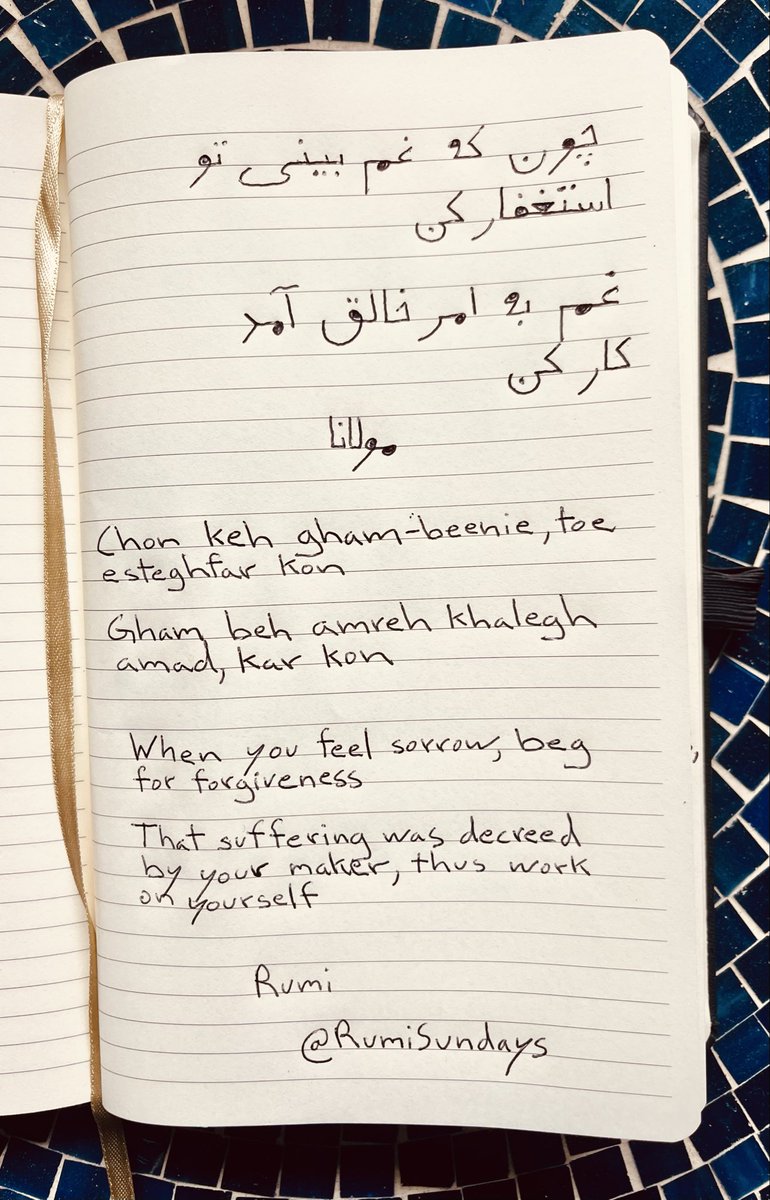 چون که غم بینی تو
استغفار کن
غم به امر خالق آمد
کار کن
مولانا
Chon keh gham-beenie, toe
esteghfar kon
Gham beh amreh khalegh
amad, kar kon
When you feel sorrow, beg
for forgiveness
That suffering was decreed
by your maker, thus work
on yourself
Rumi
@RumiSundays